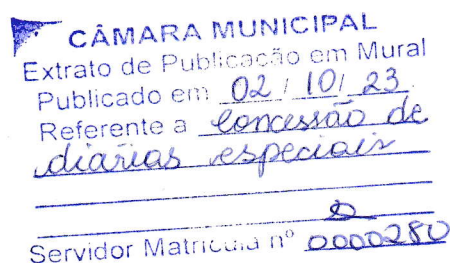 CÂMARA MUNICIPAL
Extrato de Publicação em Mural
Publicado em 02/10/23
Referente a Concessão de
diárias especiais
Servidor Matrícula nº 0000280